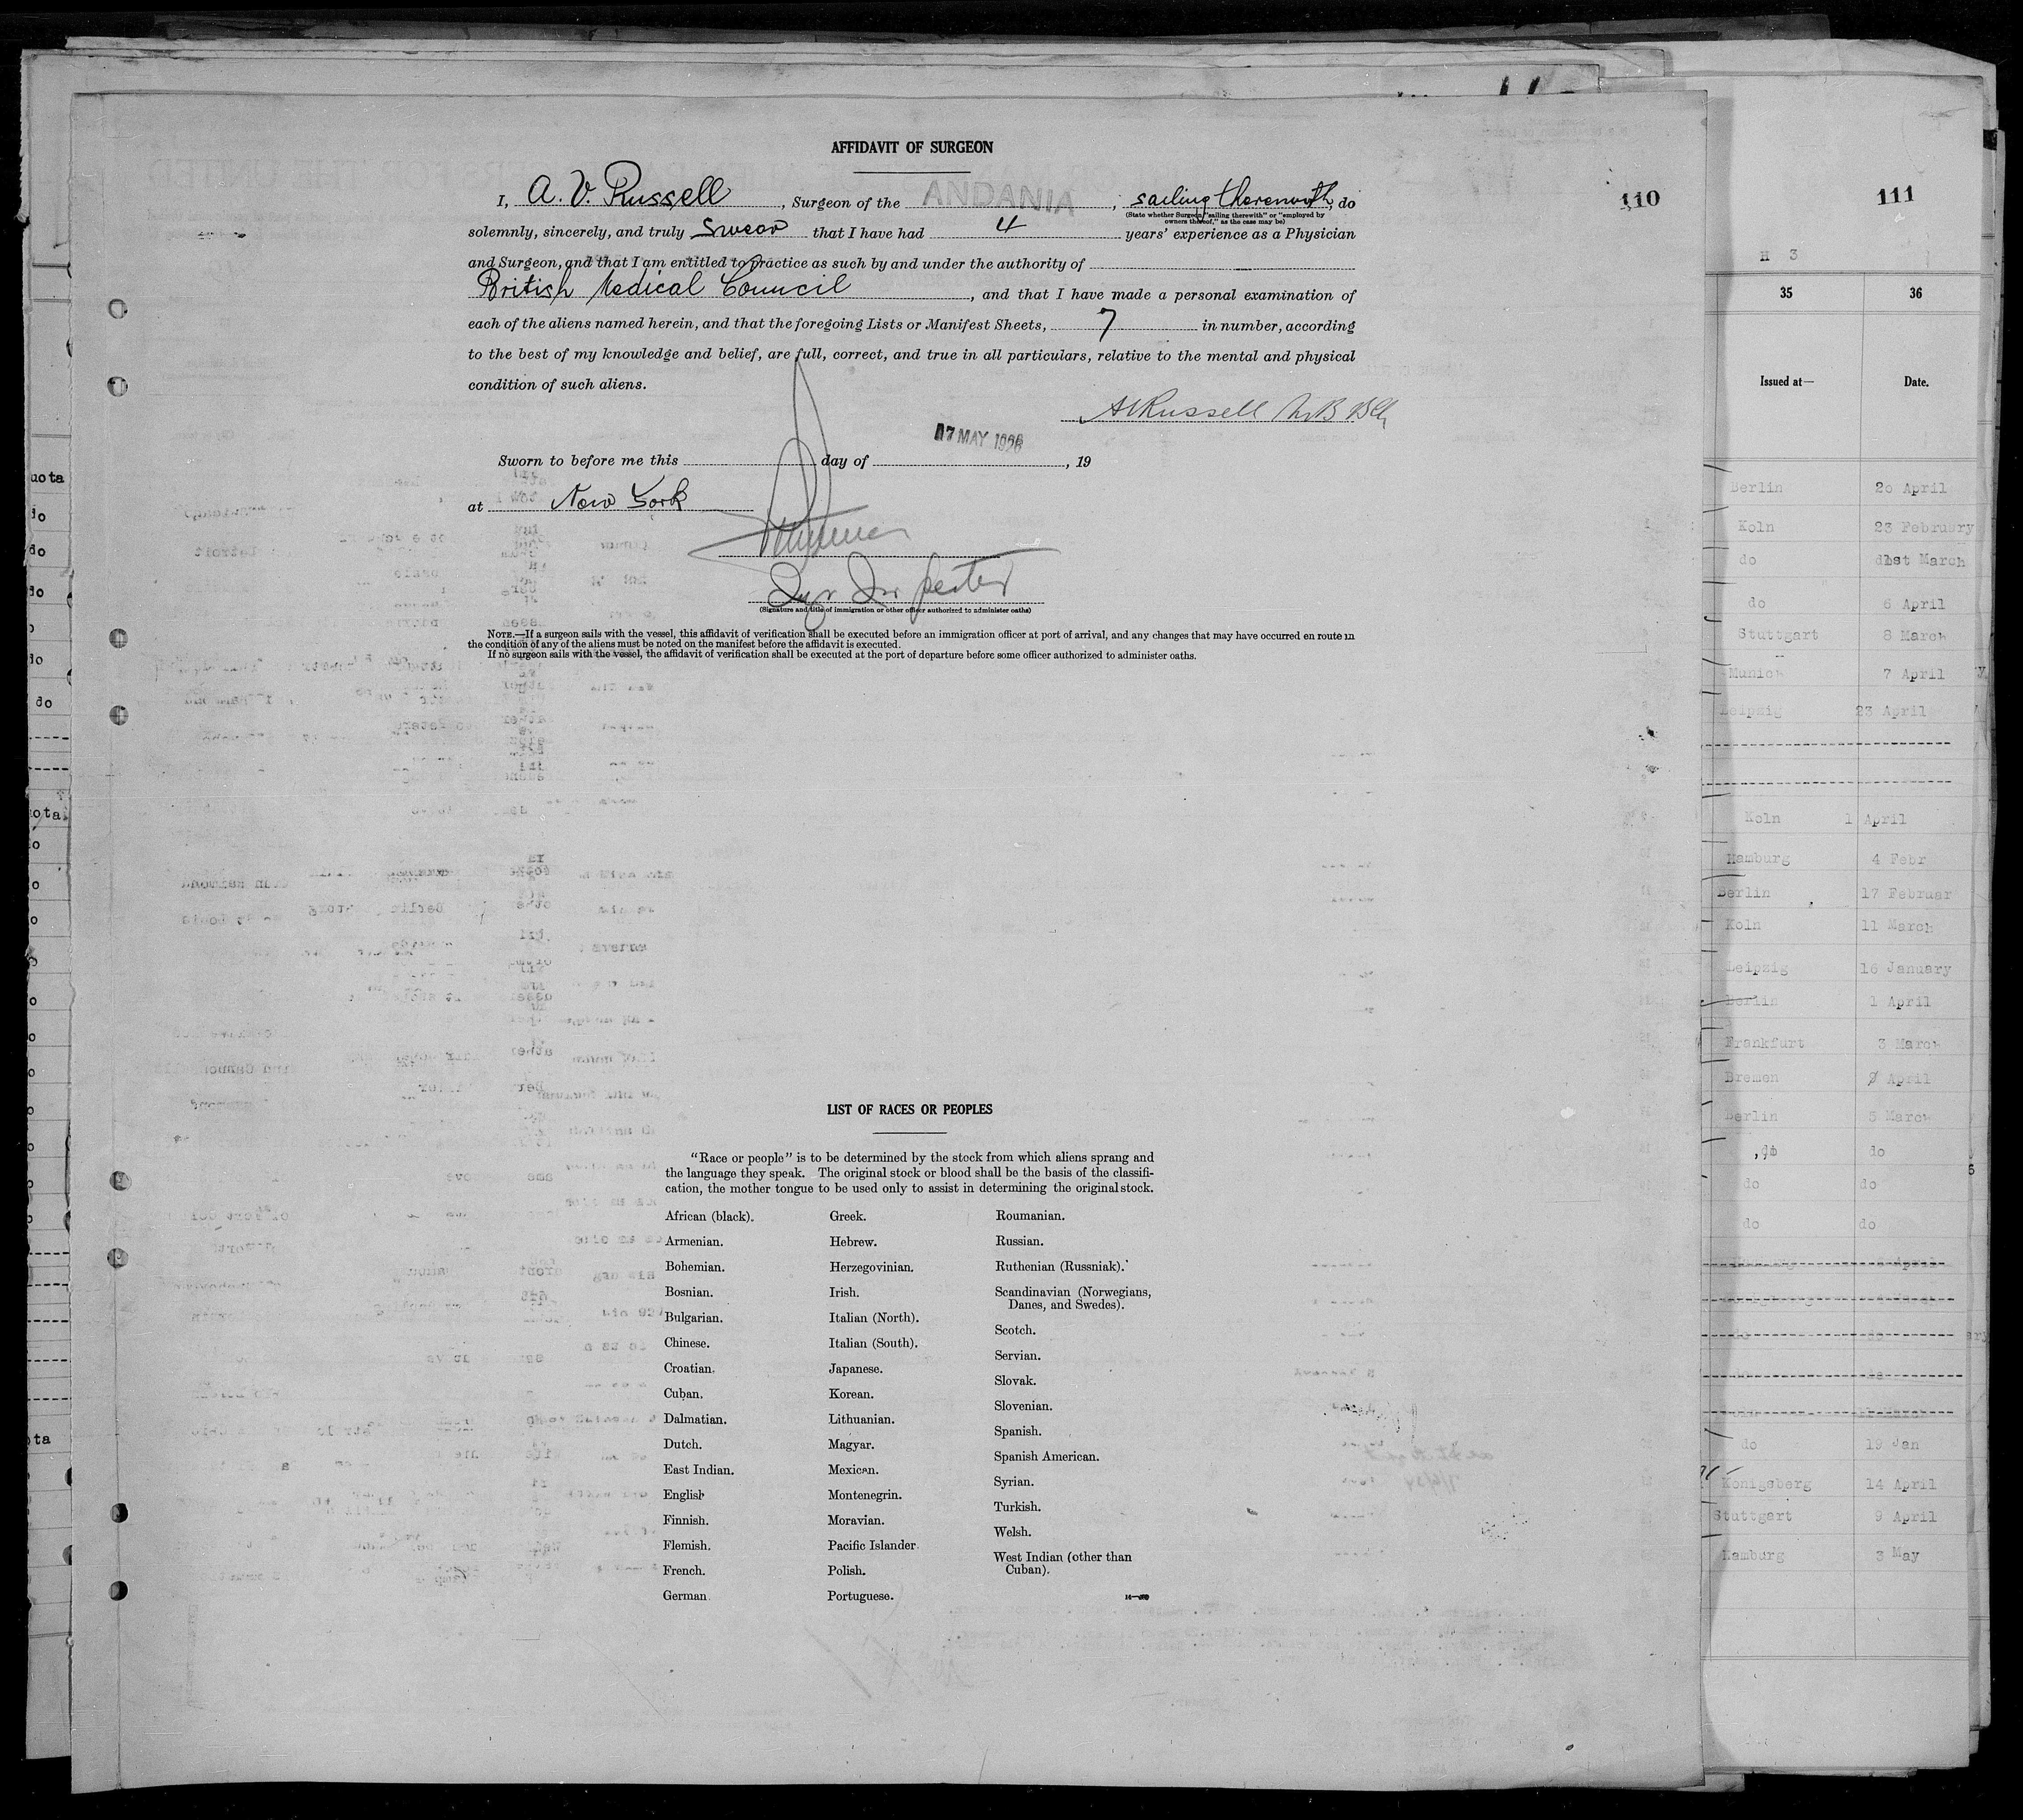 AFFIDAVIT OF SURGEON
110
111
I, A. V. Russell, Surgeon of the ANDANIA, sailing therewith, do
(State whether Surgeon "sailing therewith" or "employed by
owners thereof," as the case may be)
solemnly, sincerely, and truly swear that I have had 4 years' experience as a Physician
and Surgeon, and that I am entitled to practice as such by and under the authority of
British Medical Council, and that I have made a personal examination of
each of the aliens named herein, and that the foregoing Lists or Manifest Sheets, 7 in number, according
to the best of my knowledge and belief, are full, correct, and true in all particulars, relative to the mental and physical
condition of such aliens.
AVRussell M.B. BCh
7 MAY 1926
Sworn to before me this day of , 19
at New York
Inspector
(Signature and title of immigration or other officer authorized to administer oaths)
NOTE.—If a surgeon sails with the vessel, this affidavit of verification shall be executed before an immigration officer at port of arrival, and any changes that may have occurred en route in
the condition of any of the aliens must be noted on the manifest before the affidavit is executed.
If no surgeon sails with the vessel, the affidavit of verification shall be executed at the port of departure before some officer authorized to administer oaths.
LIST OF RACES OR PEOPLES
"Race or people" is to be determined by the stock from which aliens sprang and
the language they speak. The original stock or blood shall be the basis of the classifi-
cation, the mother tongue to be used only to assist in determining the original stock.
African (black).
Armenian.
Bohemian.
Bosnian.
Bulgarian.
Chinese.
Croatian.
Cuban.
Dalmatian.
Dutch.
East Indian.
English
Finnish.
Flemish.
French.
German
Greek.
Hebrew.
Herzegovinian.
Irish.
Italian (North).
Italian (South).
Japanese.
Korean.
Lithuanian.
Magyar.
Mexican.
Montenegrin.
Moravian.
Pacific Islander
Polish.
Portuguese.
Roumanian.
Russian.
Ruthenian (Russniak).
Scandinavian (Norwegians,
Danes, and Swedes).
Scotch.
Servian.
Slovak.
Slovenian.
Spanish.
Spanish American.
Syrian.
Turkish.
Welsh.
West Indian (other than
Cuban).
H 3
35 36
Issued at— Date.
Berlin 20 April
Koln 23 February
do 1st March
do 6 April
Stuttgart 8 March
Munich 7 April
Leipzig 23 April
Koln 1 April
Hamburg 4 Febr
Berlin 17 Februar
Koln 11 March
Leipzig 16 January
Berlin 1 April
Frankfurt 3 March
Bremen 9 April
Berlin 5 March
do do
do do
do do
do 19 Jan
Konigsberg 14 April
Stuttgart 9 April
Hamburg 3 May